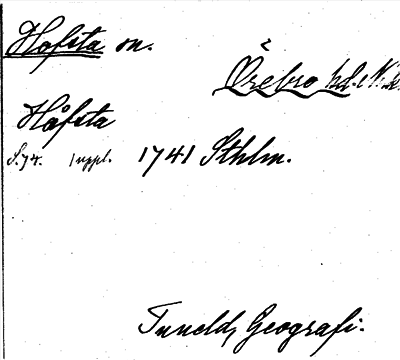 Hofsta sn.
Örebro hd. Nke
Håfsta
S. 74. suppl. 1741 Sthlm.
Tuneld, Geografi.